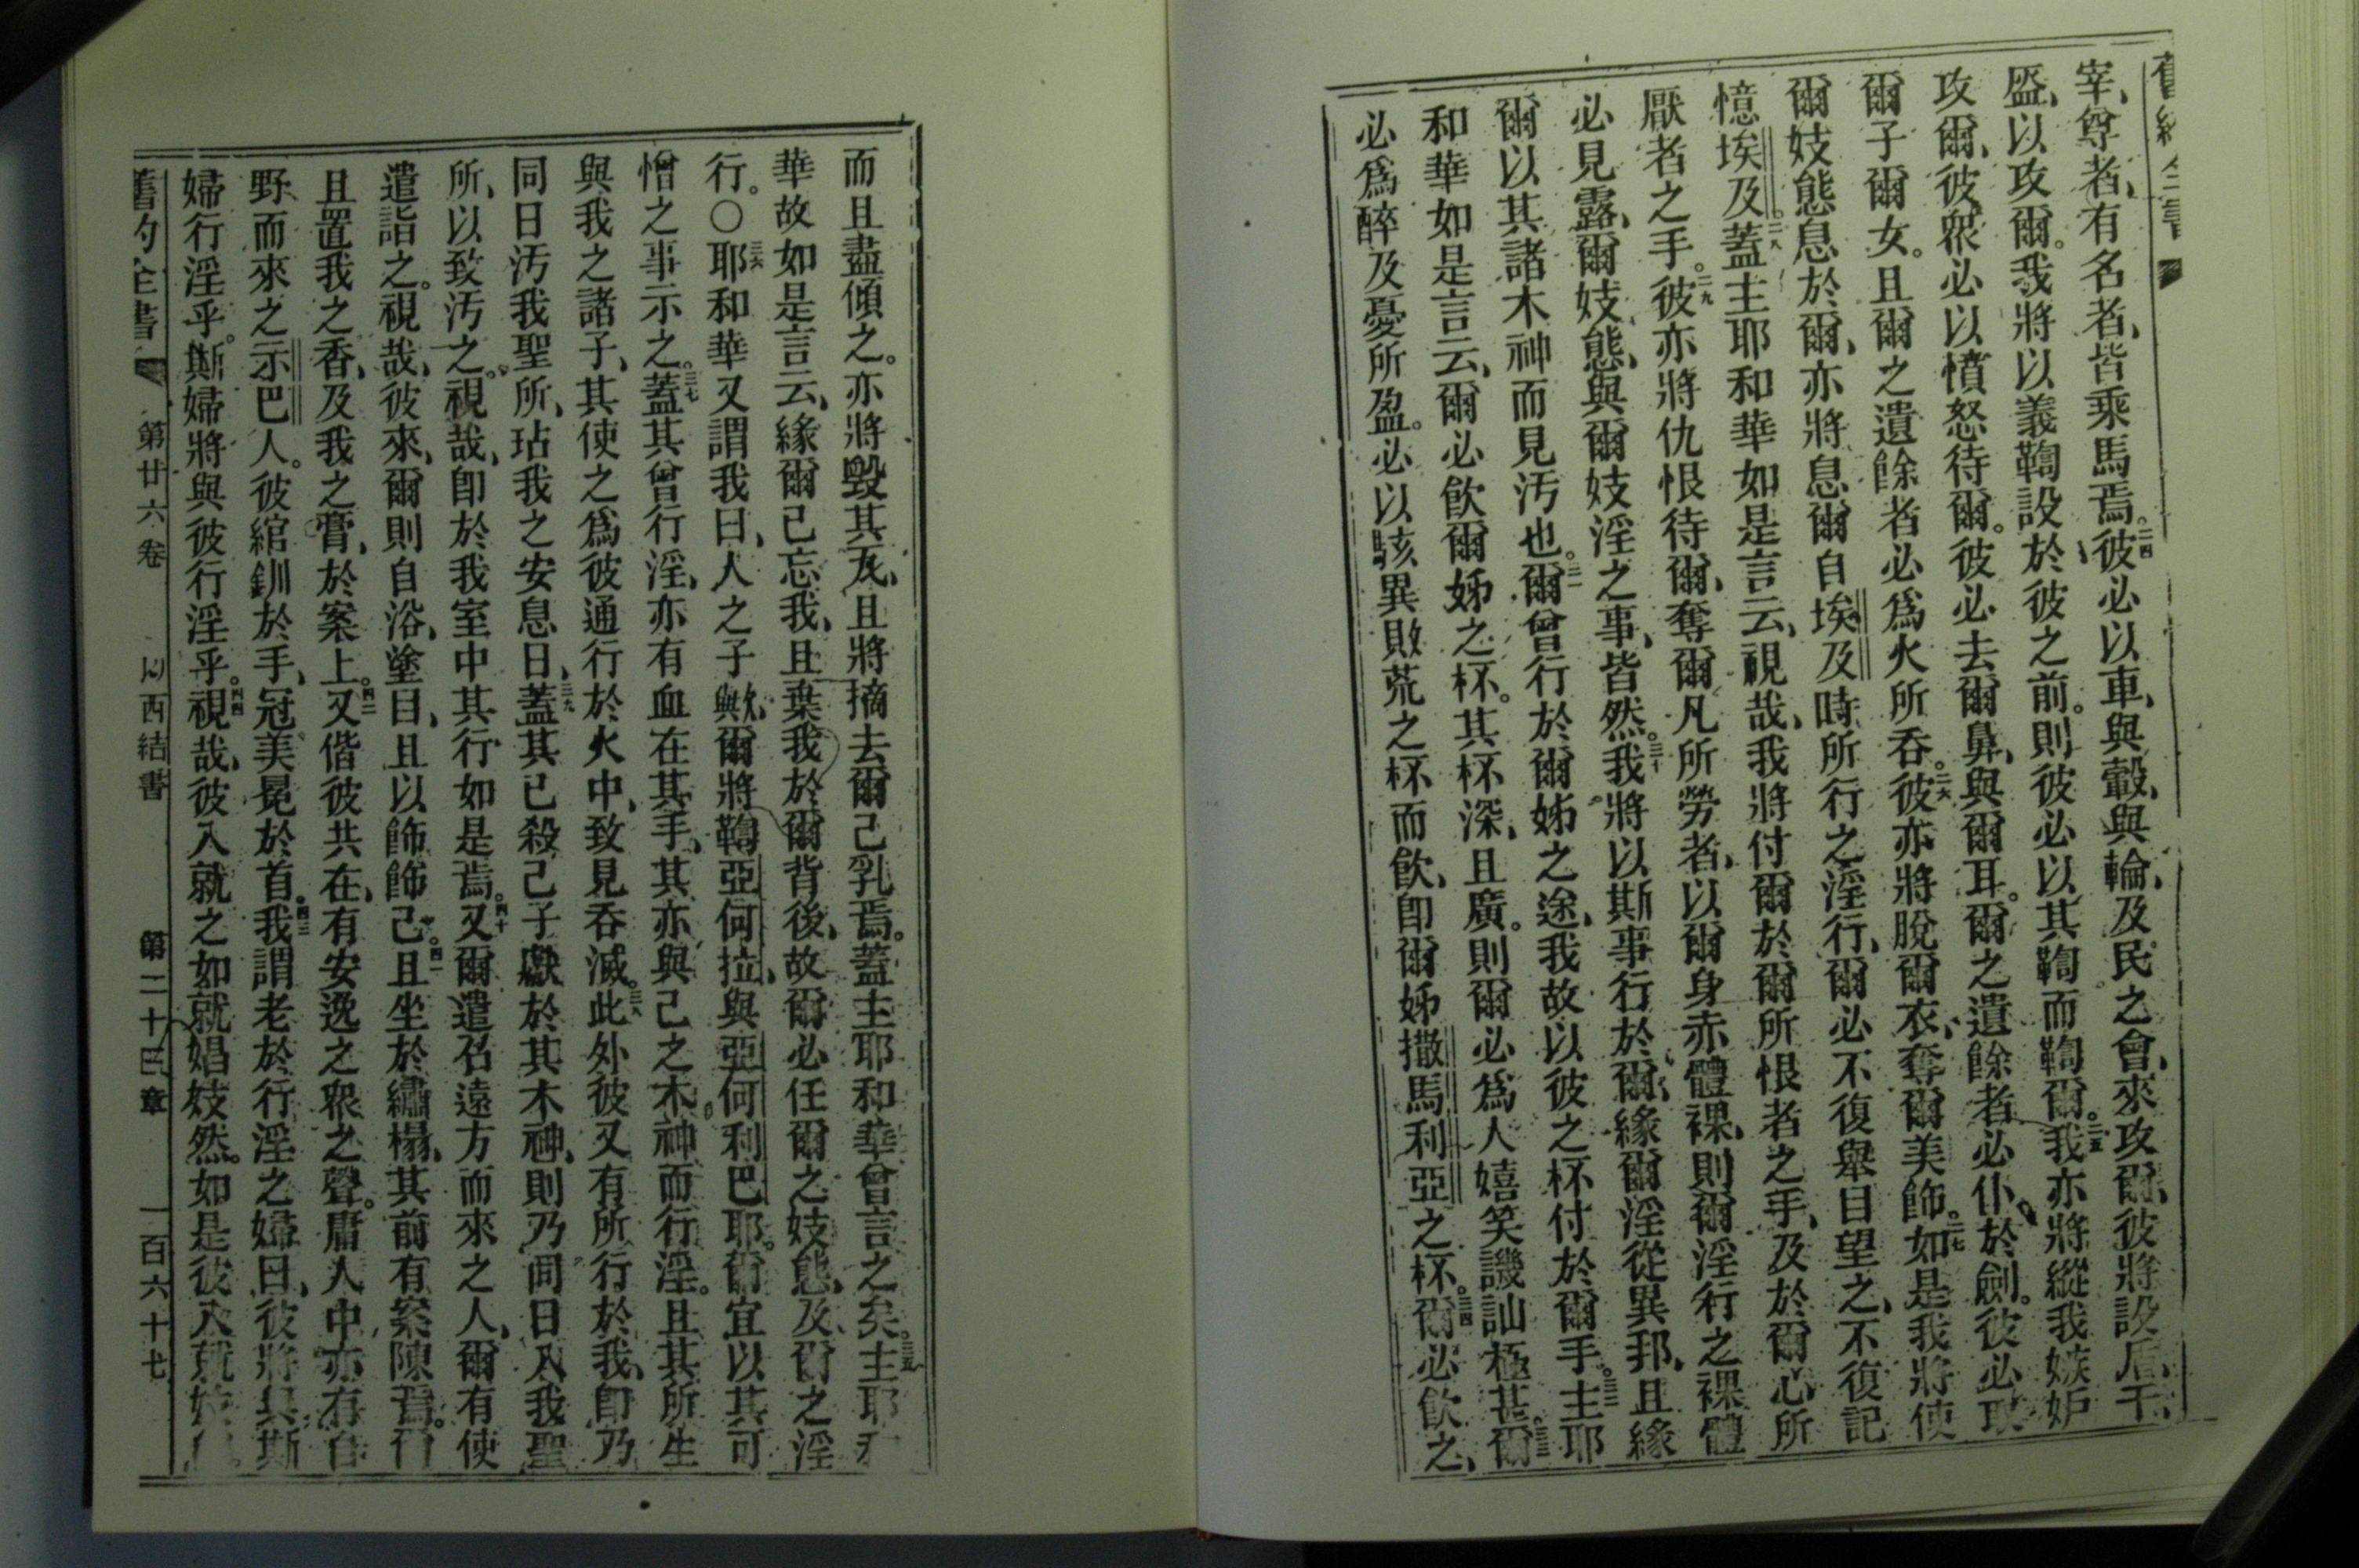 宰、尊者、有名者、皆乘馬焉。二四彼必以車、與轂、與輪、及民之會、來攻爾、彼將設盾、干、
盔、以攻爾。我將以義鞫設於彼之前。則彼必以其鞫而鞫爾。二五我亦將縱我嫉妒
攻爾、彼眾必以憤怒待爾。彼必去爾鼻、與爾耳。爾之遺餘者必仆於劍。彼必取
爾子爾女。且爾之遺餘者必爲火所吞。二六彼亦將脫爾衣、奪爾美飾。二七如是我將使
爾妓態息於爾、亦將息爾自埃及時所行之淫行、爾必不復舉目望之、不復記
憶埃及。二八蓋主耶和華如是言云、視哉、我將付爾於爾所恨者之手、及於爾心所
厭者之手。二九彼亦將仇恨待爾、奪爾凡所勞者、以爾身赤體裸、則爾淫行之裸體
必見露、爾妓態、與爾妓淫之事、皆然。三十我將以斯事行於爾、緣爾淫從異邦、且緣
爾以其諸木神而見汚也。三一爾曾行於爾姊之途、我故以彼之杯付於爾手。三二主耶
和華如是言云、爾必飲爾姊之杯。其杯深、且廣。則爾必爲人嬉笑譏訕極甚。三三爾
必爲醉及憂所盈。必以駭異敗荒之杯而飲、即爾姊撒馬利亞之杯。三四爾必飲之、
而且盡傾之。亦將毀其瓦、且將摘去爾己乳焉。蓋主耶和華曾言之矣。三五主耶和
華故如是言云、緣爾已忘我、且棄我於爾背後、故爾必任爾之妓態、及爾之淫
行。〇三六耶和華又謂我曰、人之子歟、爾將鞫亞何拉、與亞何利巴耶。爾宜以其可
憎之事示之。三七蓋其曾行淫、亦有血在其手。其亦與己之木神而行淫。且其所生
與我之諸子、其使之爲彼通行於火中、致見吞滅。三八此外彼又有所行於我、即乃
同日汚我聖所、玷我之安息日、三九蓋其已殺己子獻於其木神、則乃同日入我聖
所、以致汚之。視哉、即於我室中其行如是焉。四十又爾遣召遠方而來之人、爾有使
遣詣之。視哉、彼來、爾則自浴、塗目、且以飾飾己。四一且坐於繡榻、其前有案陳焉。爾
且置我之香、及我之膏、於案上。四二又偕彼共在、有安逸之眾之聲。庸人中亦有自
野而來之示巴人。彼綰釧於手、冠美冕於首。四三我謂老於行淫之婦曰、彼將與斯
婦行淫乎。斯婦將與彼行淫乎。四四視哉、彼入就之如就娼妓然。如是彼入就
舊約全書 第廿六卷 西結書 第二十三章 一百六十七